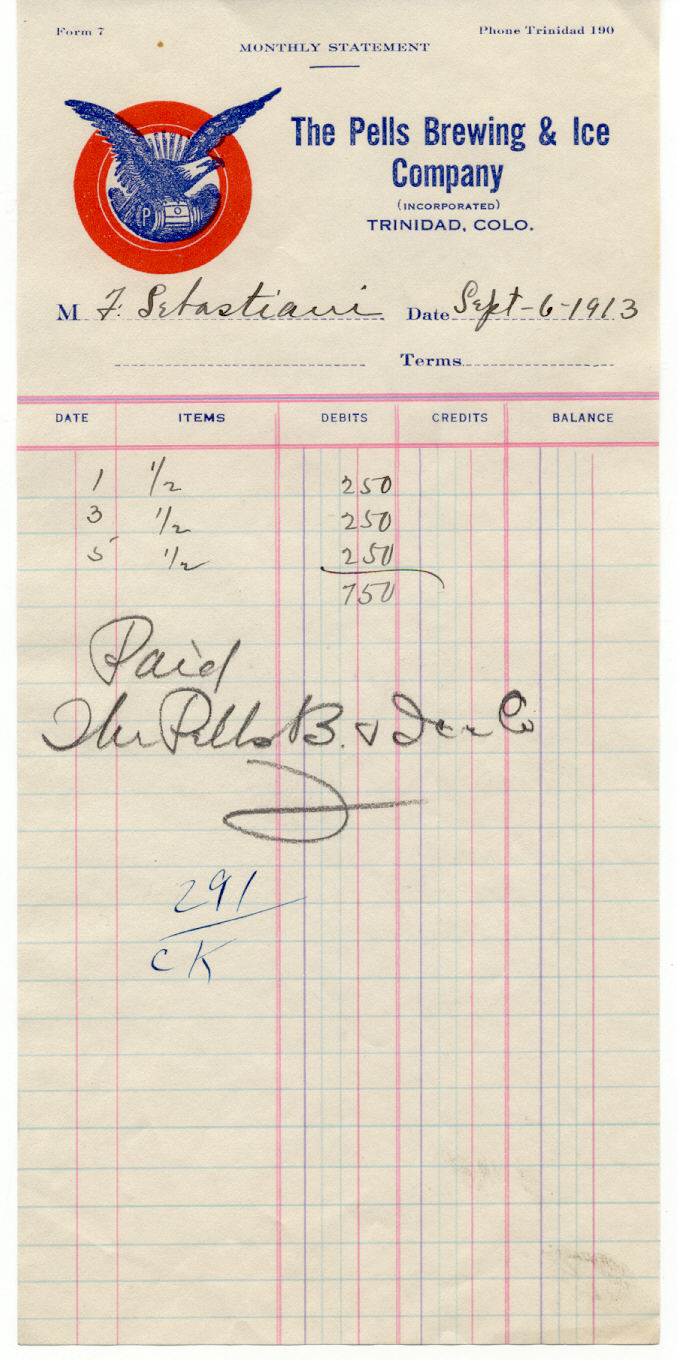 Form 7
Phone Trinidad 190
MONTHLY STATEMENT
The Pells Brewing & Ice
Company
(INCORPORATED)
TRINIDAD, COLO.
P
M F. Sebastiani Date Sept-6-1913
Terms
DATE ITEMS DEBITS CREDITS BALANCE
1 1/2 250
3 1/2 250
5 1/2 250
750
Paid
The Pells B. & Ice Co
291
CK